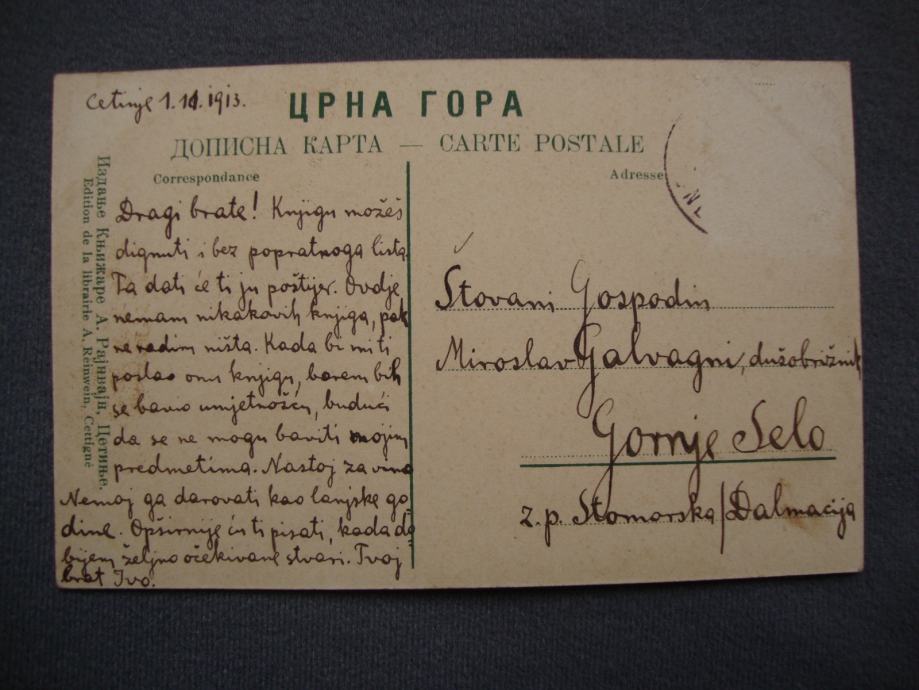 Cetinje 1.11.1913.
ЦРНА ГОРА
ДОПИСНА КАРТА — CARTE POSTALE
Correspondance
Adresse
Издање Књижаре А. Рајнвајн, Цетиње.
Edition de la librairie A. Reinwein, Cettigné
Dragi brate! Knjigu možeš
dignuti i bez popratnoga lista.
Ta dati će ti ju poštijer. Ovdje
nemam nikakovih knjiga, pak
ne radim ništa. Kada bi mi ti
poslao onu knjigu, barem bih
se bavio umjetnošću, budući
da se ne mogu baviti mojim
predmetima. Nastoj za vino
Nemoj ga darovati kao lanjske go-
dine. Opširnije ću ti pisati, kada do-
bijem željno očekivane stvari. Tvoj
brat Ivo.
Štovani Gospodin
Miroslav Galvagni, dušobrižnik
Gornje Selo
z.p. Stomorska/Dalmacija